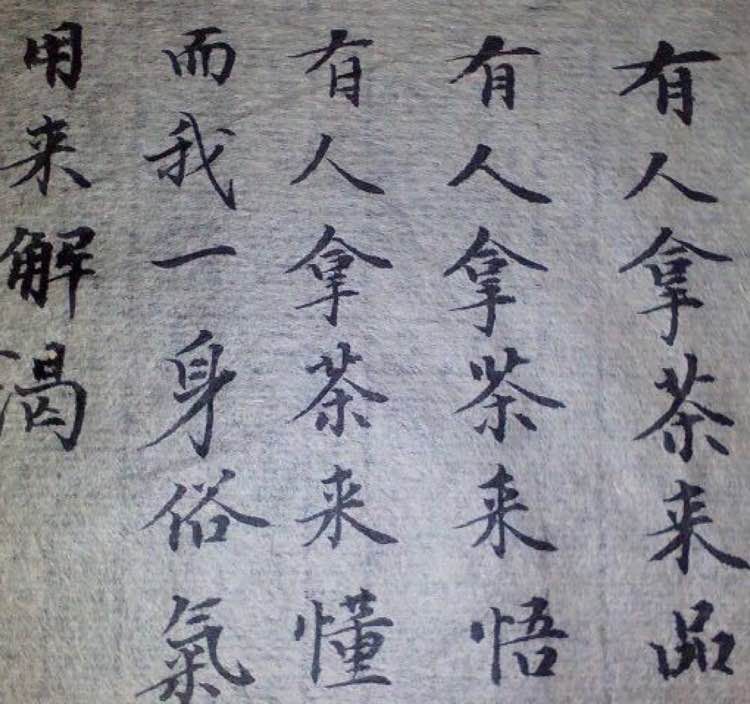 有人拿茶来品
有人拿茶来悟
有人拿茶来懂
而我一身俗氣
用来解渴